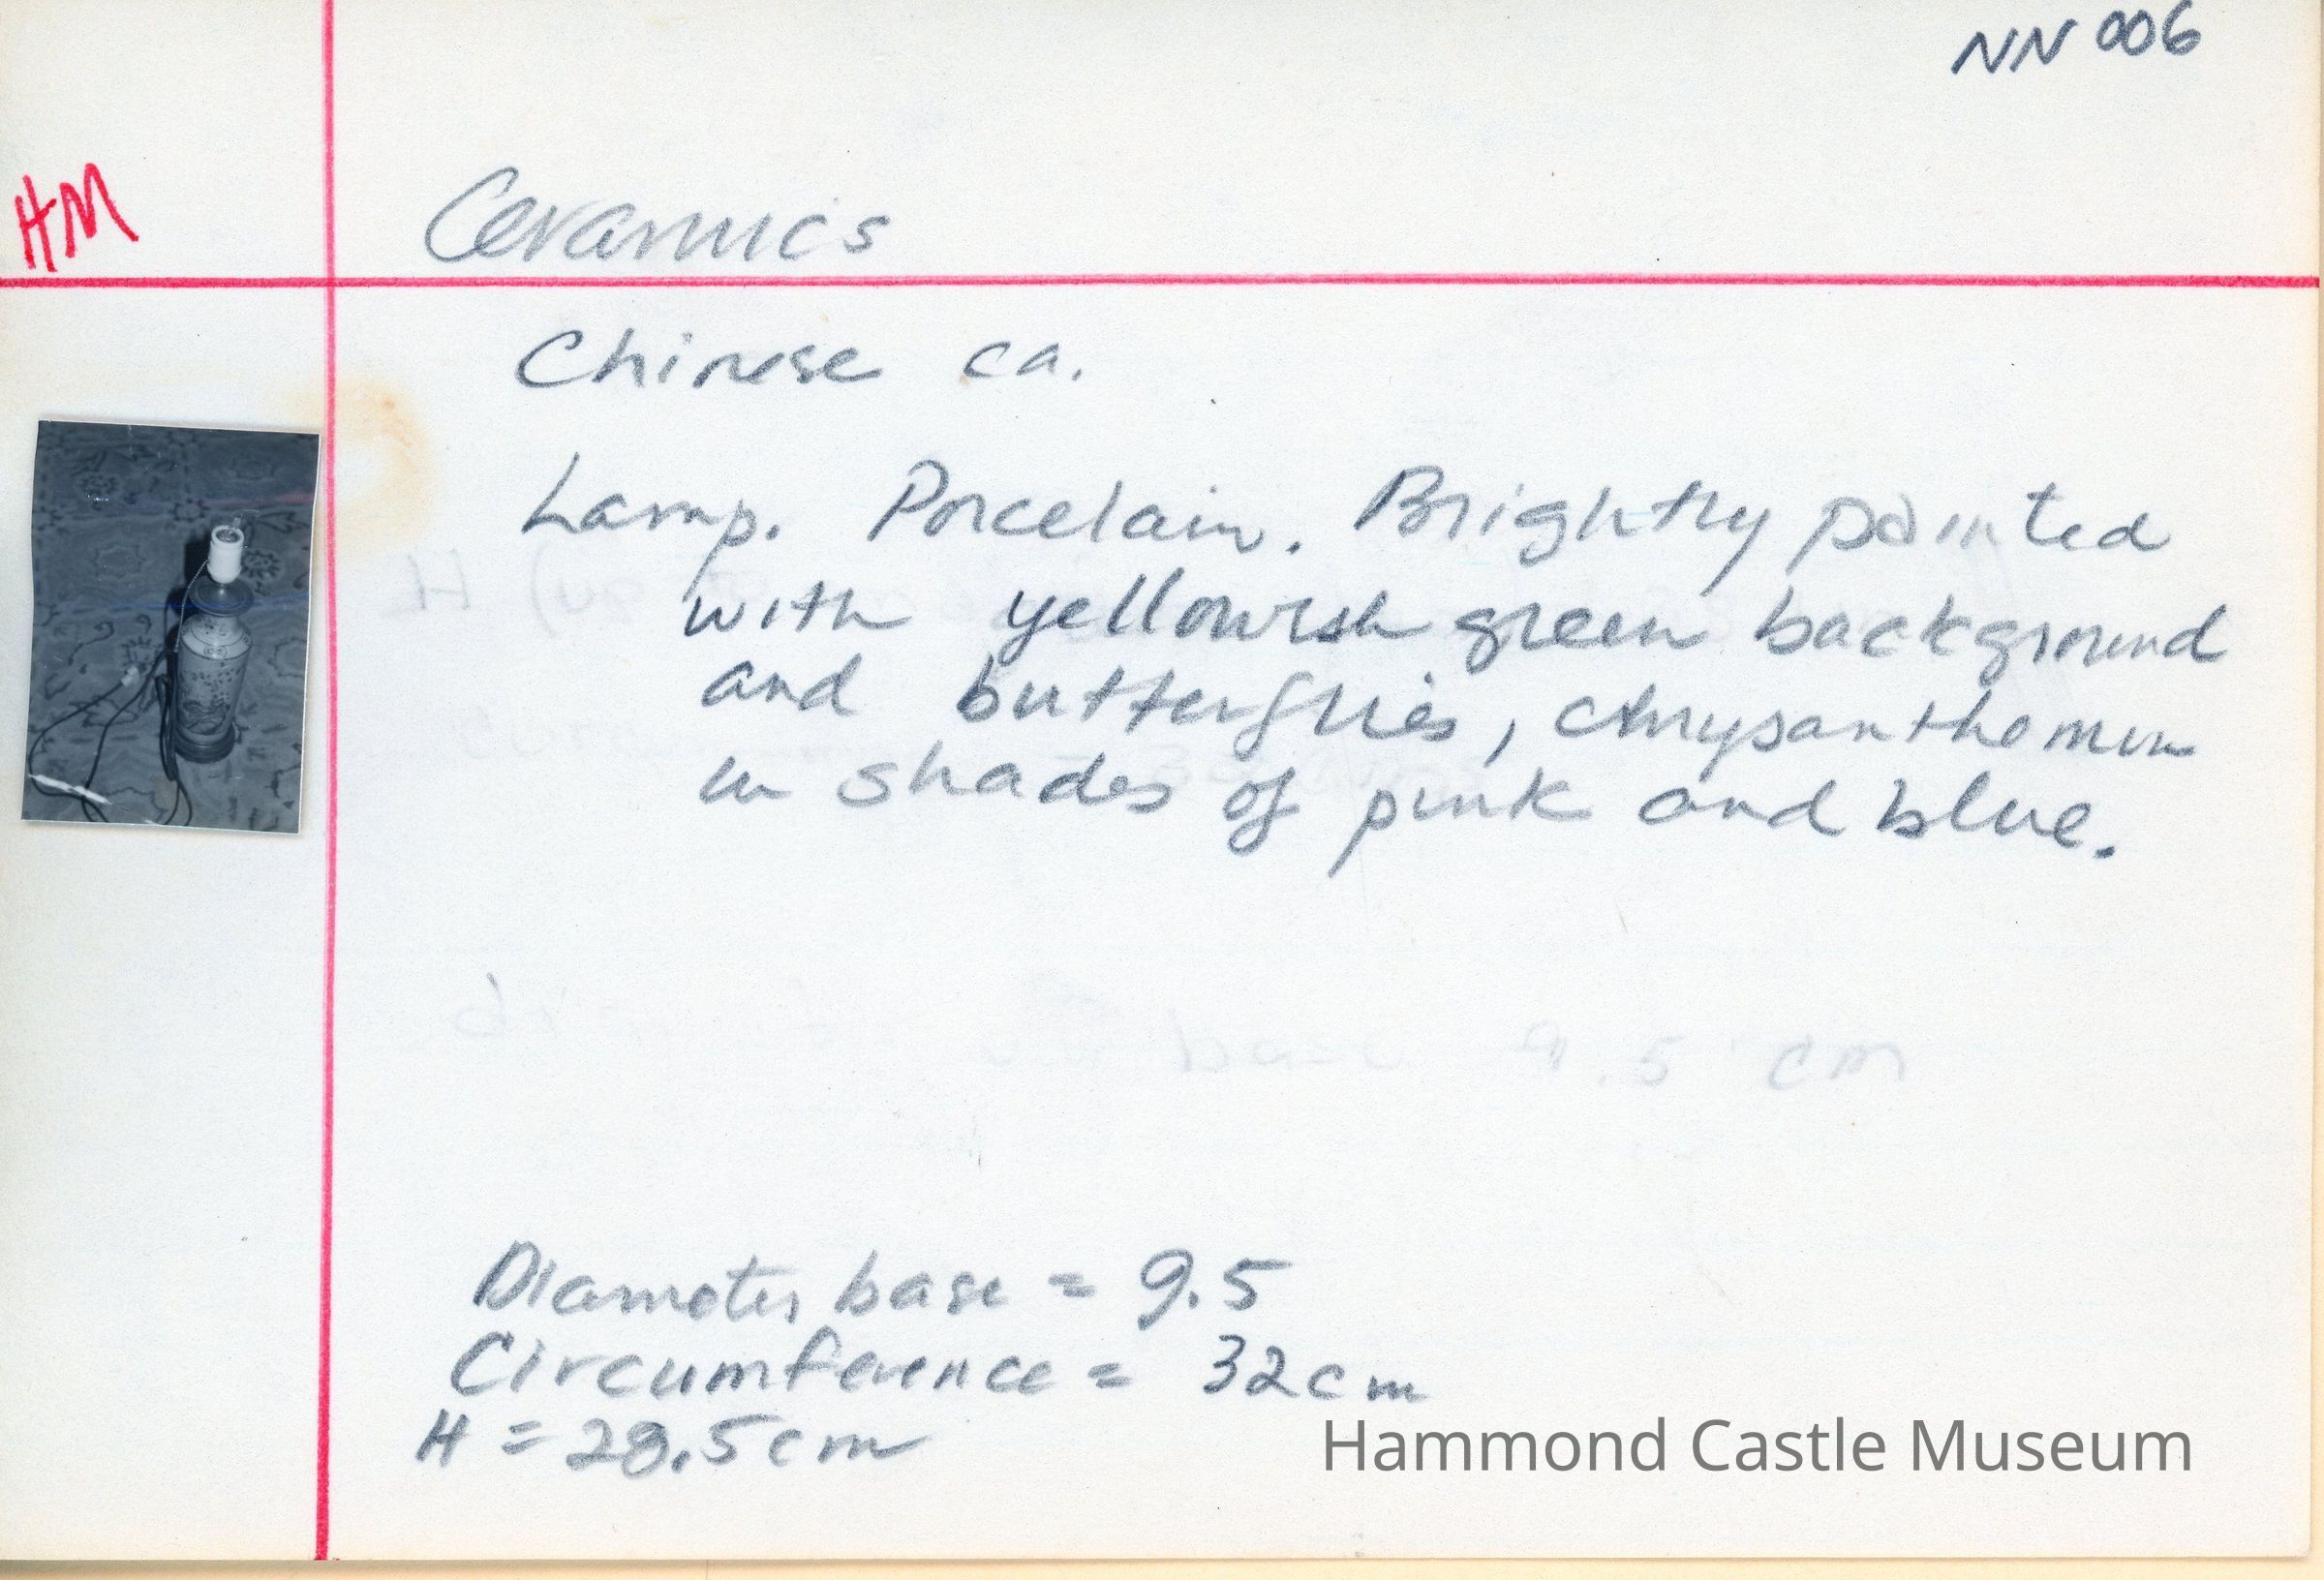 NN 006
HM
Ceramics
Chinese ca.
Lamp. Porcelain. Brightly painted
with yellowish green background
and butterflies, chrysanthemum
in shades of pink and blue.
9.5 cm
Diameter base = 9.5
Circumference = 32cm
H = 28.5cm
Hammond Castle Museum